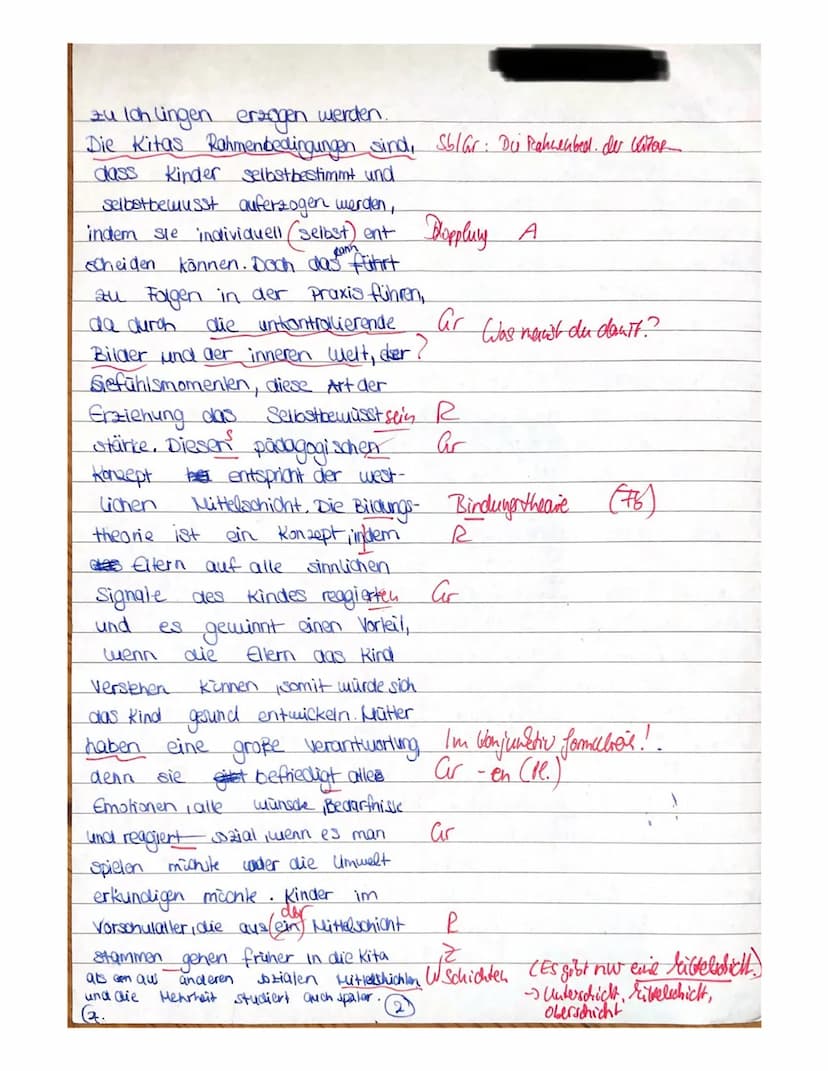 zu Ichlingen erzogen werden.
Die Kitas Rahmenbedingungen sind, Sb/Gr: Die Rahmenbed. der Kitas
dass Kinder selbstbestimmt und
selbstbewusst auferzogen werden,
indem sie individuell (selbst) ent Dopplung A
kann
scheiden können. Doch das führt
zu Folgen in der Praxis führen,
da durch die unkontrollierende Gr Was meinst du damit?
Bilder und der inneren Welt, der ?
Gefühlsmomenten, diese Art der
Erziehung das Selbstbewusstsein R
stärke. Diesen s pädagogischen Gr
Konzept entspricht der west-
lichen Mittelschicht. Die Bildungs- Bindungstheorie (Fb)
theorie ist ein Konzept, indem R
Eltern auf alle sinnlichen
Signale des Kindes reagierten Gr
und es gewinnt einen Vorteil,
wenn die Eltern das Kind
verstehen können, somit würde sich
das Kind gesund entwickeln. Mütter
haben eine große Verantwortung, Im Konjunktiv formulieren!
denn sie befriedigt alles Gr -en (Pl.)
Emotionen, alle wünsche, Bedürfnisse
und reagiert sozial, wenn es man Gr
spielen möchte oder die Umwelt
erkundigen möchte. Kinder im
der
Vorschulalter, die aus (ein) Mittelschicht R
stammen gehen früher in die Kita Z
als aus anderen sozialen Mittelschichten W Schichten (Es gibt nur eine Mittelschicht.)
und die Mehrheit studiert auch später. (2) → Unterschicht, Mittelschicht,
Oberschicht